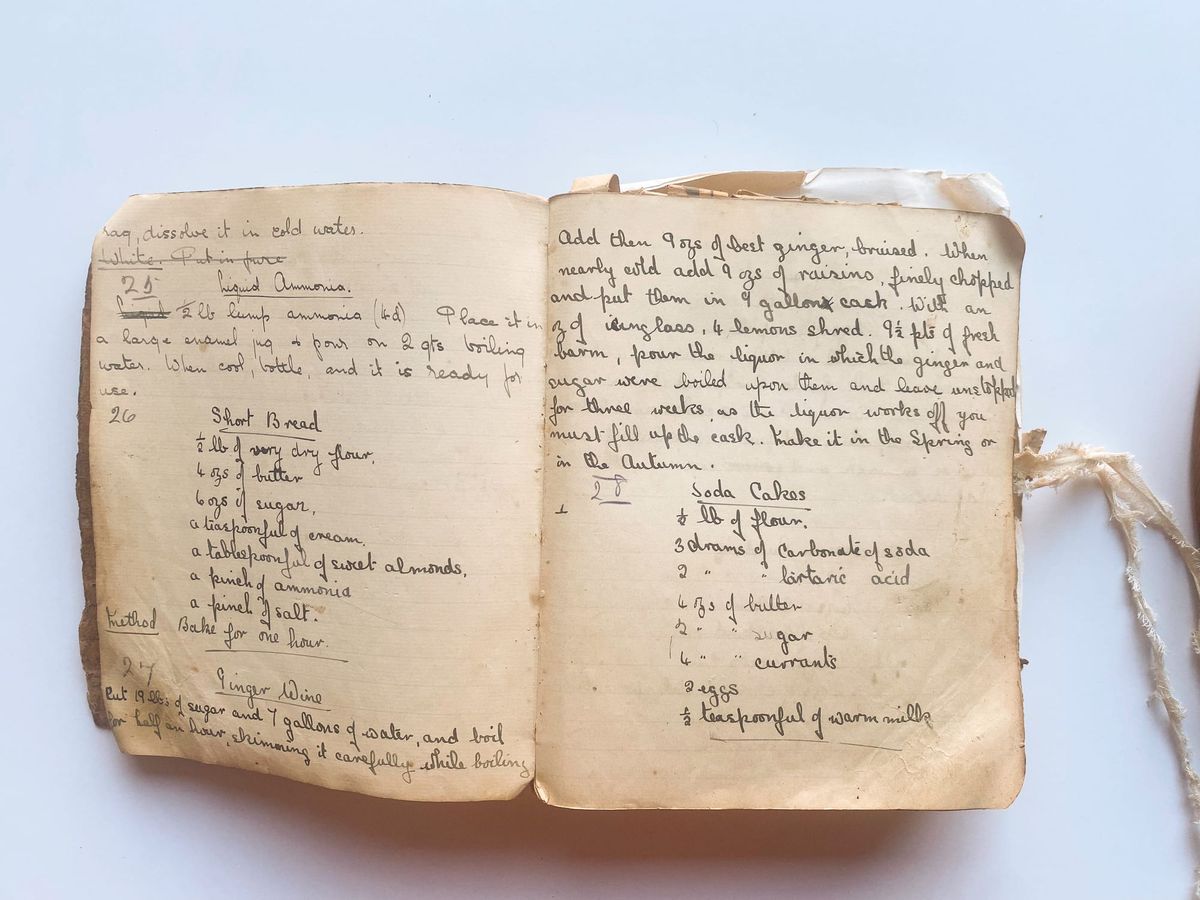 rag, dissolve it in cold water.
White. Put in pure
25
Liquid Ammonia.
Liquid ½ lb lump ammonia (4d) Place it in
a large enamel jug & pour on 2 qts boiling
water. When cool, bottle, and it is ready for
use.
26
Short Bread
½ lb of very dry flour,
4 ozs of butter
6 ozs of sugar,
a teaspoonful of cream.
a tablespoonful of sweet almonds,
a pinch of ammonia
a pinch of salt.
Method Bake for one hour.
27
Ginger Wine
Put 19 lbs of sugar and 7 gallons of water, and boil
for half an hour, skimming it carefully while boiling
Add then 9 ozs of best ginger, bruised. When
nearly cold add 9 ozs of raisins, finely chopped
and put them in 9 gallon cask. With an
oz of isinglass, 4 lemons shred. 9½ pts of fresh
barm, pour the liquor in which the ginger and
sugar were boiled upon them and leave unstopped
for three weeks, as the liquor works off you
must fill up the cask. Make it in the Spring or
in the Autumn.
28
Soda Cakes
½ lb of flour.
3 drams of Carbonate of soda
2 " " tartaric acid
4 ozs of butter
2 " " sugar
4 " " currants
2 eggs
½ teaspoonful of warm milk